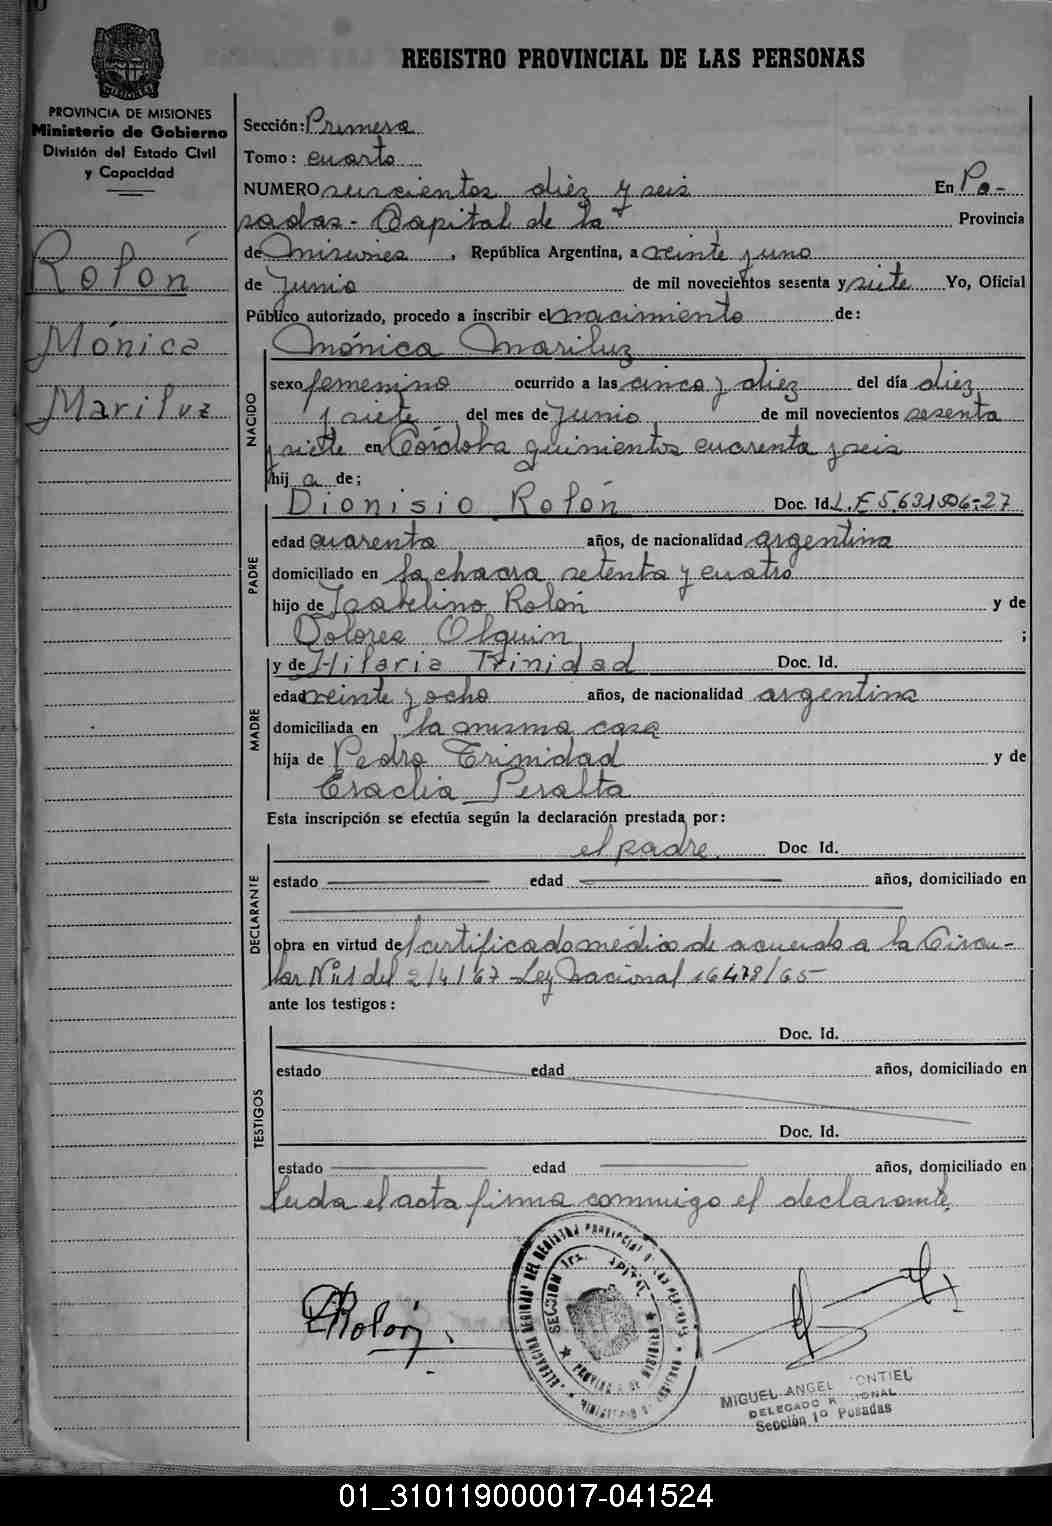 REGISTRO PROVINCIAL DE LAS PERSONAS
PROVINCIA DE MISIONES
Ministerio de Gobierno
División del Estado Civil
y Capacidad
Rolón
Mónica
Mariluz
Sección: Primera
Tomo: cuarto
NUMERO seiscientos diez y seis En Po-
sadas - Capital de la Provincia
de Misiones, República Argentina, a veinte y uno
de Junio de mil novecientos sesenta y siete Yo, Oficial
Público autorizado, procedo a inscribir el nacimiento de:
NACIDO
Mónica Mariluz
sexo femenino ocurrido a las cinco y diez del día diez
y siete del mes de Junio de mil novecientos sesenta
y siete en Córdoba quinientos cuarenta y seis
hij a de;
PADRE
Dionisio Rolón Doc. Id. L.E 5.631.506-27
edad cuarenta años, de nacionalidad argentina
domiciliado en la chacra setenta y cuatro
hijo de Isabelino Rolón y de
Dolores Olguin ;
MADRE
y de Hilaria Trinidad Doc. Id.
edad veinte y ocho años, de nacionalidad argentina
domiciliada en la misma casa
hija de Pedro Trinidad y de
Eraclia Peralta
Esta inscripción se efectúa según la declaración prestada por:
DECLARANTE
el padre. Doc Id.
estado edad años, domiciliado en
obra en virtud de certificado médico de acuerdo a la Circu-
lar Nº 1 del 2/4/67 - Ley Nacional 16478/65
ante los testigos:
TESTIGOS
Doc. Id.
estado edad años, domiciliado en
Doc. Id.
estado edad años, domiciliado en
Leida el acta firma conmigo el declarante,
DRolón
SECCION 1ra. CAPITAL
PROVINCIA DE MISIONES
MIGUEL ANGEL MONTIEL
DELEGADO REGIONAL
Sección 1º Posadas
01_310119000017-041524